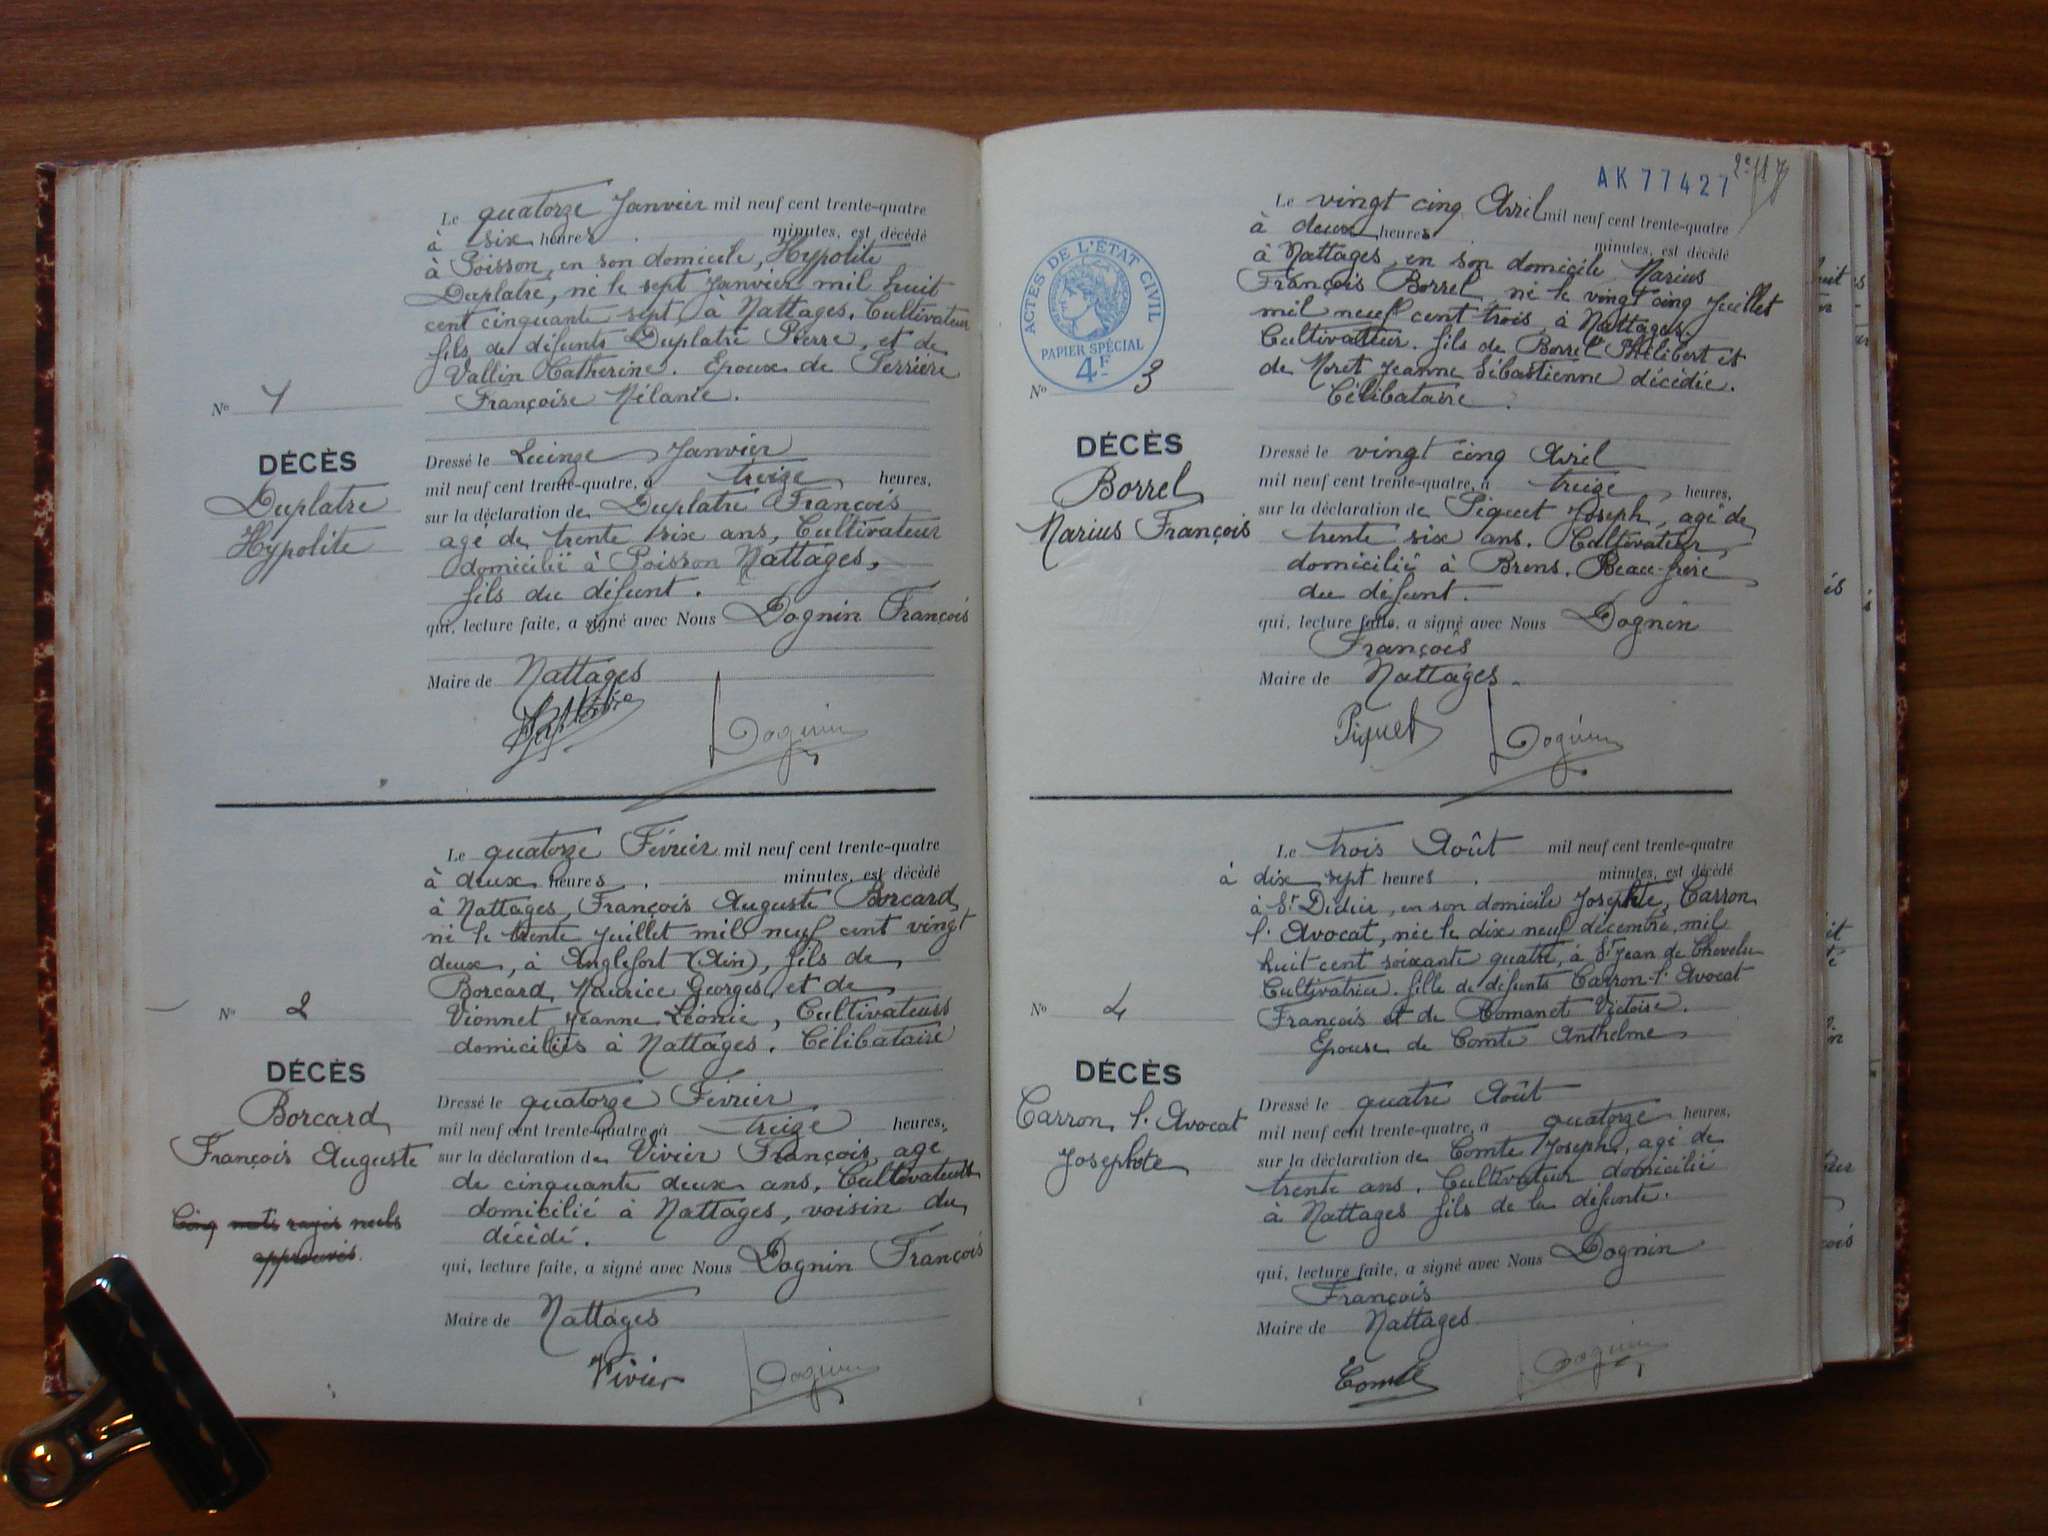 Le quatorze Janvier mil neuf cent trente-quatre
à six heures minutes, est décédé
à Poisson, en son domicile, Hypolite
Duplatre, né le sept Janvier mil huit
cent cinquante sept, à Nattages. Cultivateur
fils de défunts Duplatre Pierre, et de
Vallin Catherine. Epoux de Perrière
Françoise Mélanie.
No 1
DÉCÈS
Duplatre
Hypolite
Dressé le Quinze Janvier
mil neuf cent trente-quatre, à treize heures,
sur la déclaration de Duplatre François
agé de trente six ans, Cultivateur
domicilié à Poisson Nattages,
fils du défunt.
qui, lecture faite, a signé avec Nous Dognin François
Maire de Nattages
Dognin
Le quatorze Février mil neuf cent trente-quatre
à deux heures minutes, est décédé
à Nattages, François Auguste Borcard
né le trente Juillet mil neuf cent vingt
deux, à Anglefort (Ain), fils de
Borcard Maurice Georges, et de
Vionnet Jeanne Léonie, Cultivateurs
domiciliés à Nattages. Célibataire
No 2
DÉCÈS
Borcard
François Auguste
Cinq mots rayés nuls
approuvés.
Dressé le quatorze Février
mil neuf cent trente-quatre, à treize heures,
sur la déclaration de Vivier François, agé
de cinquante deux ans, Cultivateur
domicilié à Nattages, voisin du
décédé.
qui, lecture faite, a signé avec Nous Dognin François
Maire de Nattages
Vivier Dognin
AK 77427
ACTES DE L'ÉTAT CIVIL
PAPIER SPÉCIAL
4F
Le vingt cinq Avril mil neuf cent trente-quatre
à deux heures minutes, est décédé
à Nattages, en son domicile Marius
François Borrel, né le vingt cinq Juillet
mil neuf cent trois, à Nattages
Cultivateur. fils de Borrel Philibert et
de Moret Jeanne Sébastienne décédée.
Célibataire.
No 3
DÉCÈS
Borrel
Marius François
Dressé le vingt cinq Avril
mil neuf cent trente-quatre, à treize heures,
sur la déclaration de Piquet Joseph, agé de
trente six ans. Cultivateur,
domicilié à Brens. Beau-frère
du défunt.
qui, lecture faite, a signé avec Nous Dognin
François
Maire de Nattages.
Piquet Dognin
Le trois Août mil neuf cent trente-quatre
à dix sept heures minutes, est décédé
à St Didier, en son domicile Josephte, Carron
l'Avocat, née le dix neuf décembre mil
huit cent soixante quatre, à St Jean de Chevelu
Cultivatrice. fille de défunts Carron-l'Avocat
François et de Romanet Victoire.
Epouse de Comte Anthelme
No 4
DÉCÈS
Carron l'Avocat
Josephte
Dressé le quatre Août
mil neuf cent trente-quatre, à quatorze heures,
sur la déclaration de Comte Joseph, agé de
trente ans. Cultivateur domicilié
à Nattages fils de la défunte.
qui, lecture faite, a signé avec Nous Dognin
François
Maire de Nattages
Comte Dognin